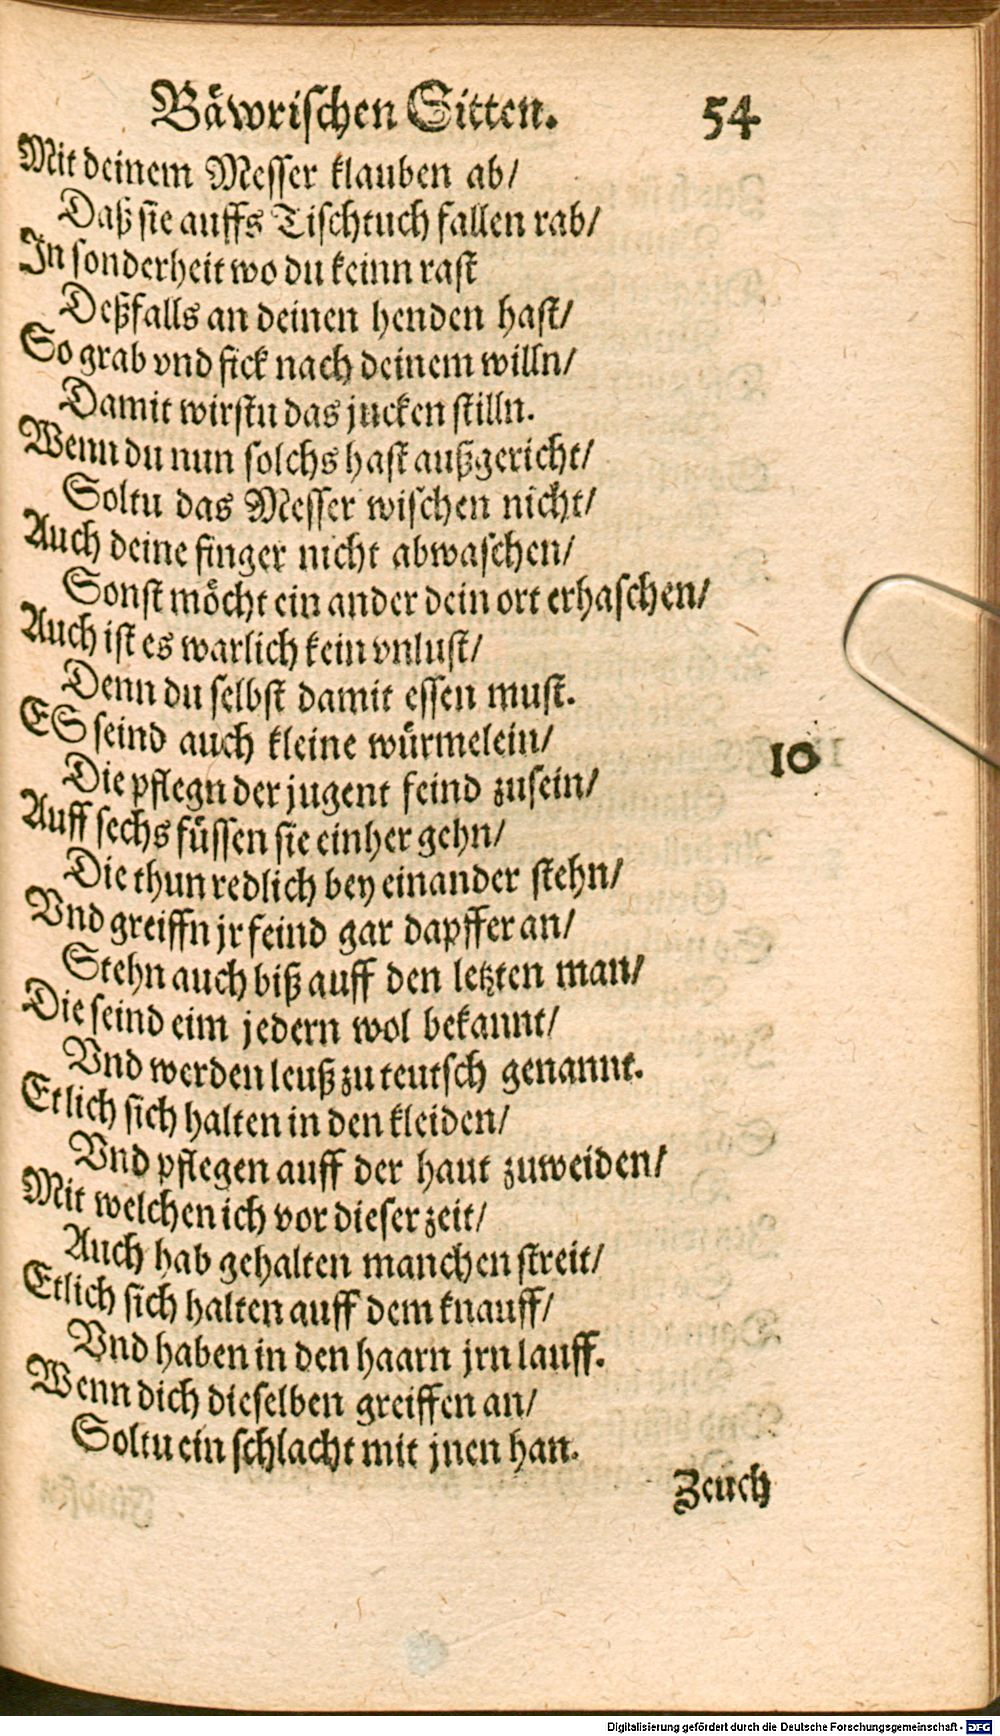 Bäwrischen Sitten. 54
Mit deinem Messer klauben ab/
Daß sie auffs Tischtuch fallen rab/
In sonderheit wo du keinn rast
Deßfalls an deinen henden hast/
So grab vnd fick nach deinem willn/
Damit wirstu das jucken stilln.
Wenn du nun solchs hast außgericht/
Soltu das Messer wischen nicht/
Auch deine finger nicht abwaschen/
Sonst möcht ein ander dein ort erhaschen/
Auch ist es warlich kein vnlust/
Denn du selbst damit essen must.
ES seind auch kleine würmelein/ 10
Die pflegn der jugent feind zusein/
Auff sechs füssen sie einher gehn/
Die thun redlich bey einander stehn/
Vnd greiffn jr feind gar dapffer an/
Stehn auch biß auff den letzten man/
Die seind eim jedern wol bekannt/
Vnd werden leuß zu teutsch genannt.
Etlich sich halten in den kleiden/
Vnd pflegen auff der haut zuweiden/
Mit welchen ich vor dieser zeit/
Auch hab gehalten manchen streit/
Etlich sich halten auff dem knauff/
Vnd haben in den haarn jrn lauff.
Wenn dich dieselben greiffen an/
Soltu ein schlacht mit jnen han.
Zeuch
Digitalisierung gefördert durch die Deutsche Forschungsgemeinschaft - DFG